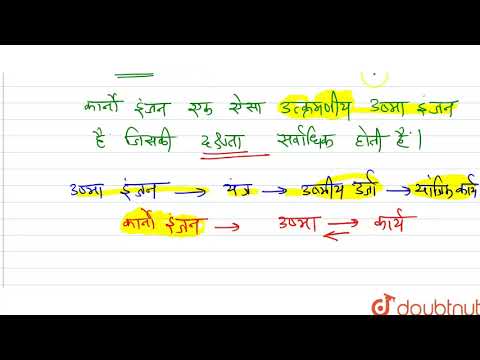 कार्नो इंजन एक ऐसा उत्क्रमणीय उष्मा इंजन
है जिसकी दक्षता सर्वाधिक होती है।
उष्मा इंजन → यंत्र → उष्मीय ऊर्जा → यांत्रिक कार्य
कार्नो इंजन → उष्मा → कार्य
←
doubtnut